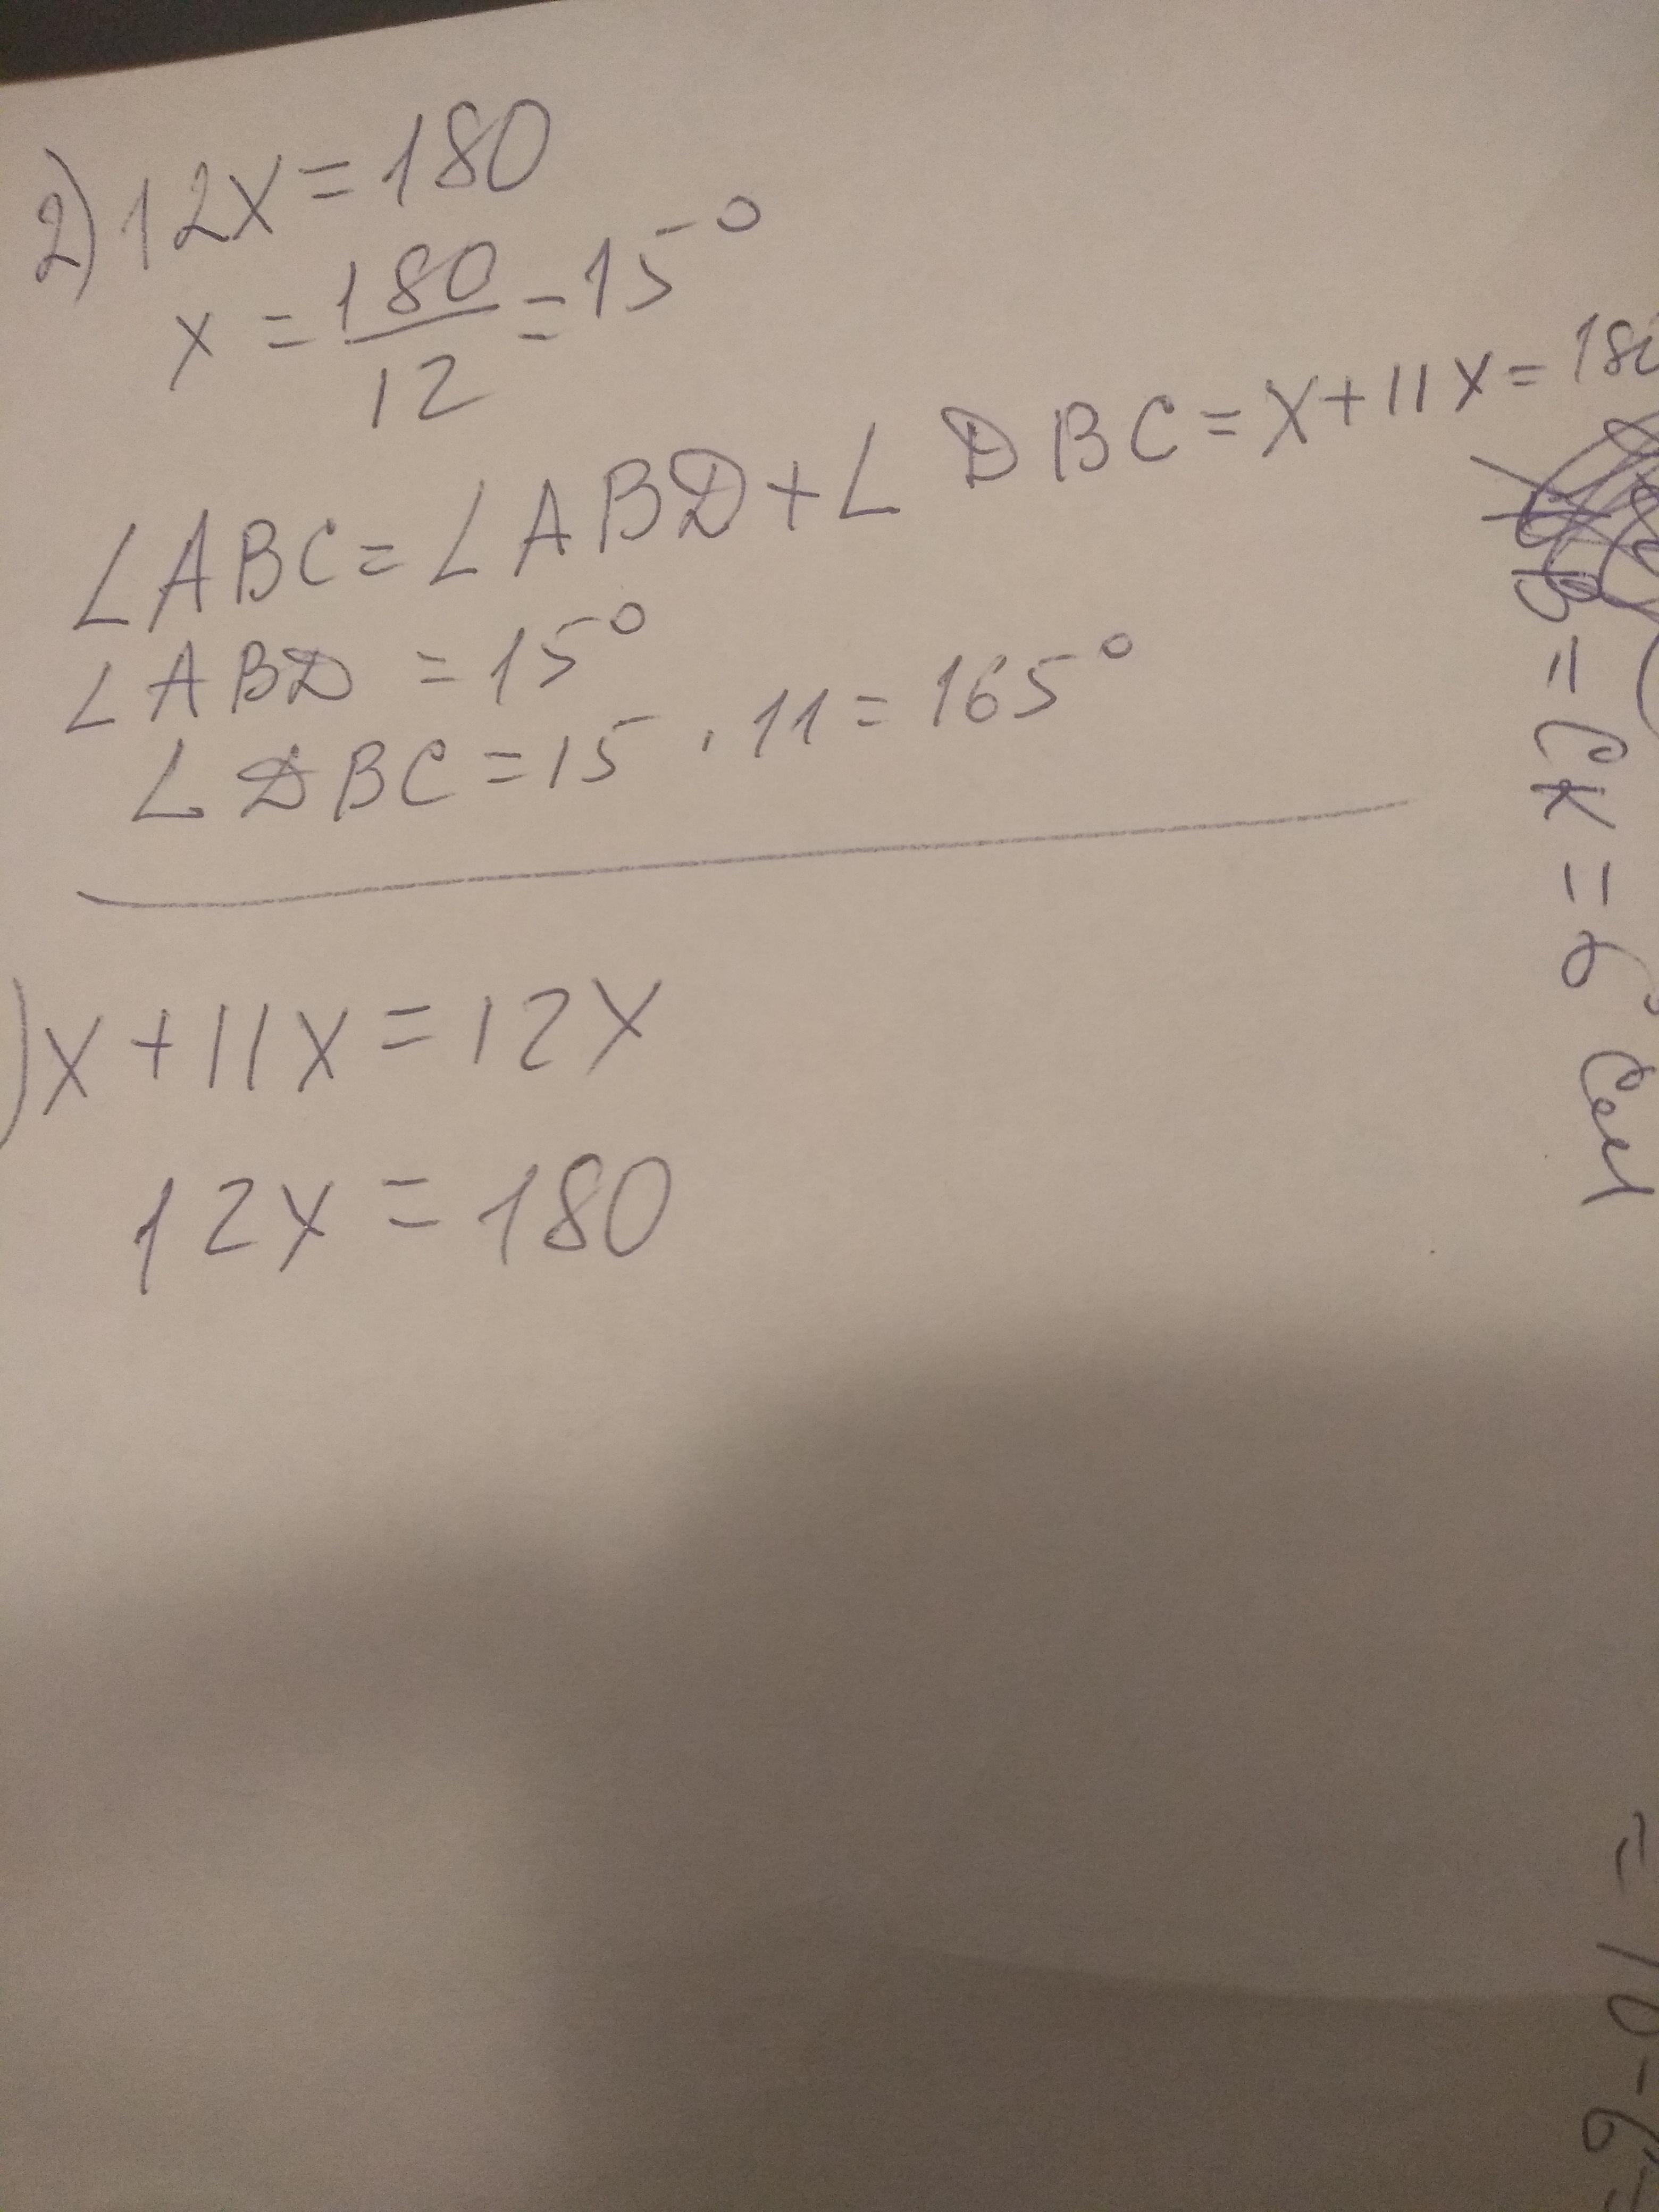 2) 12x = 180
x = 180/12 = 15°
∠ABC = ∠ABD + ∠DBC = x + 11x = 180
∠ABD = 15°
∠DBC = 15 · 11 = 165°
) x + 11x = 12x
12x = 180
B = CK = 6 см
= 10 - 6